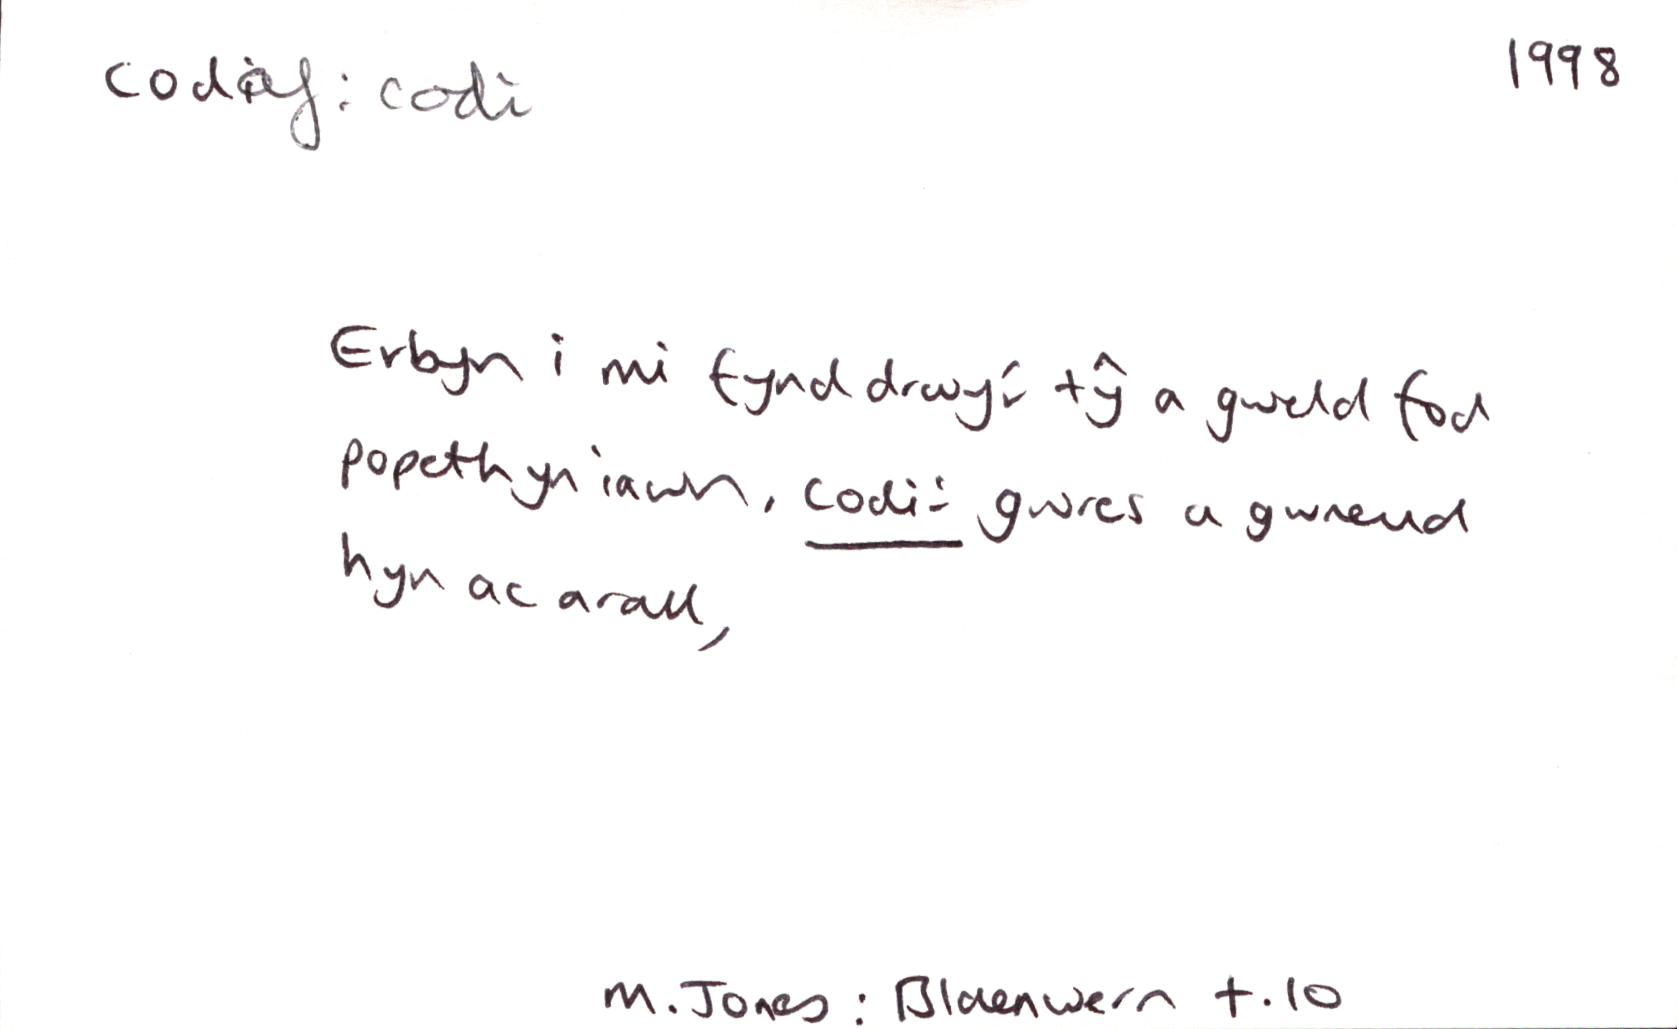 codaf: codi 1998
Erbyn i mi fynd drwy'r tŷ a gweld fod
popeth yn iawn, codi'r gwres a gwneud
hyn ac arall,
M. Jones: Blaenwern t.10